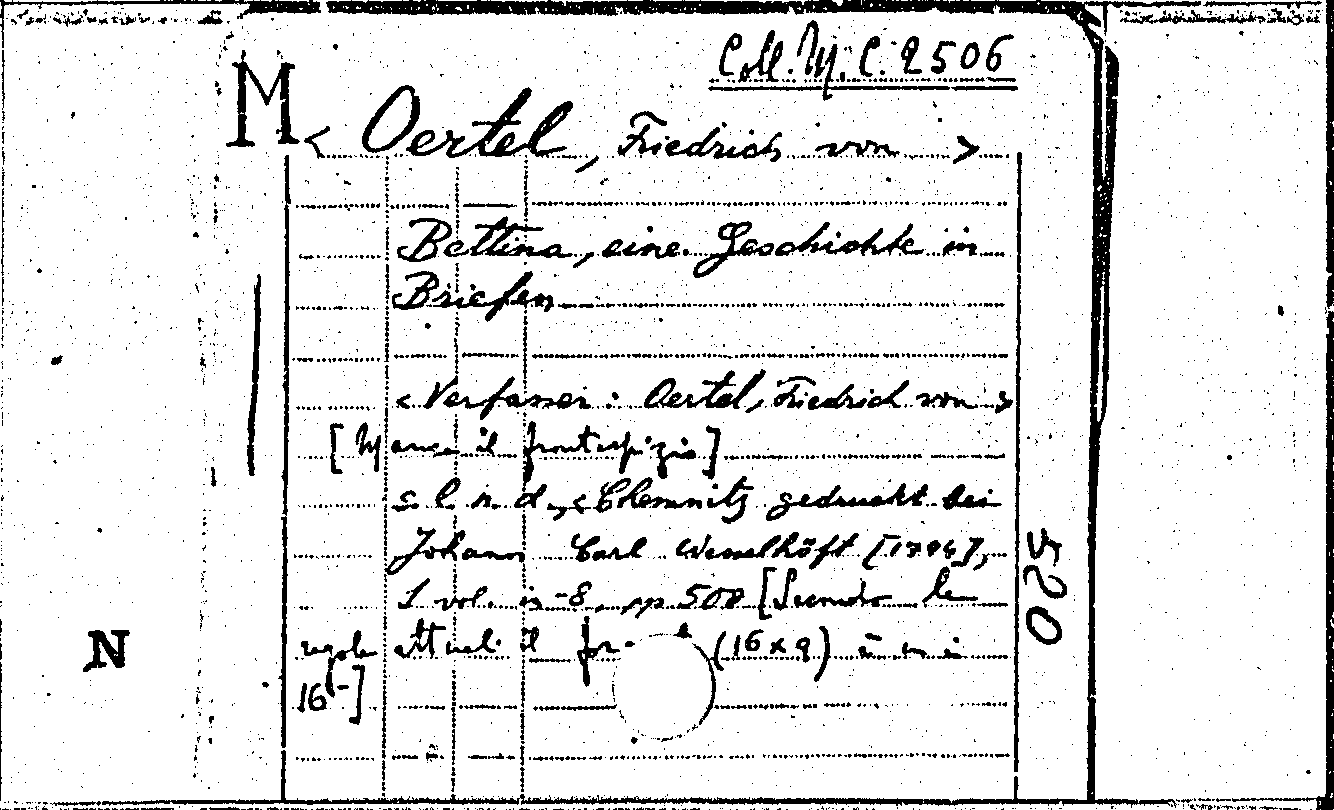 Coll. M. C. 2506
M
< Oertel, Friedrich von >
Bettina, eine Geschichte in
Briefen
< Verfasser: Oertel, Friedrich von >
[Manca il frontespizio]
s. l. n. d., < Chemnitz gedruckt bei
Johann Carl Wesselhöft [1794],
1 vol. in-8, pp 508 [Secondo le
regole attuali il (16 x 9) in
16°-]
520
N